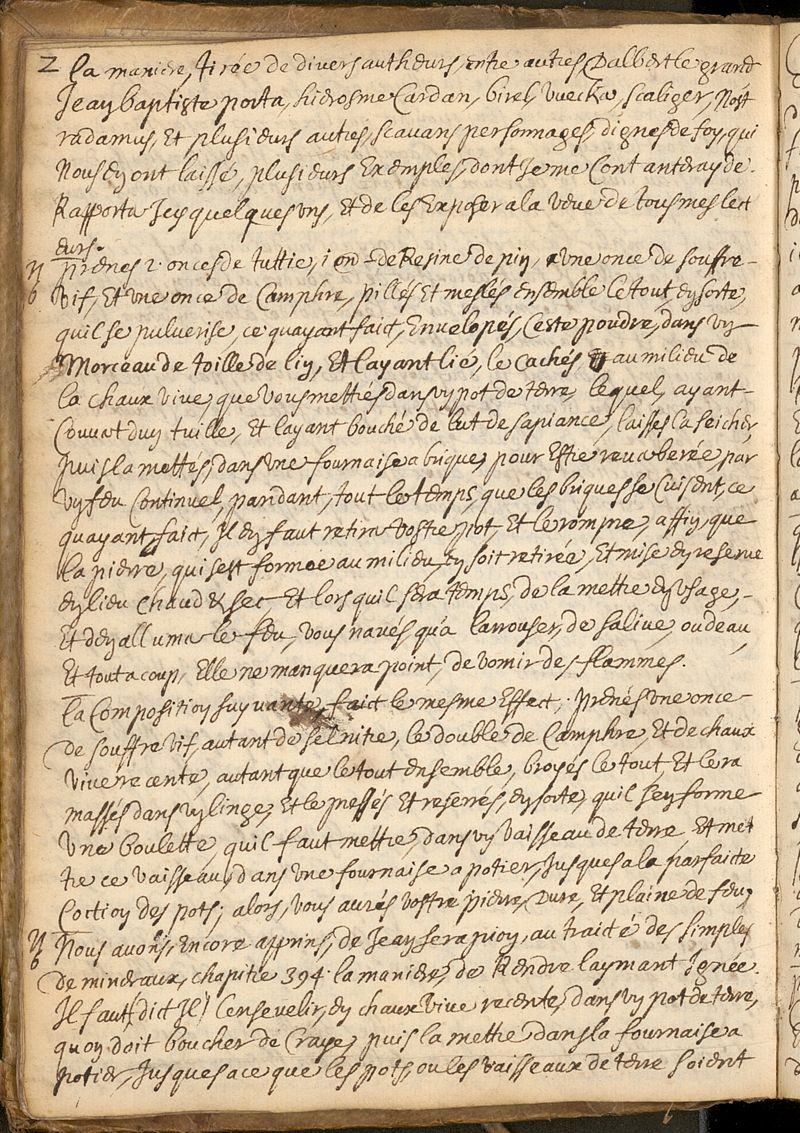 2 la maniere, tirée de divers autheurs, entre autres, Dalbert le grand
Jean baptiste porta, hierosme Cardan, birel, vuecka, scaliger, Nost
radamus, Et plusieurs autres scavans personnages, dignes de foy, qui
Nous en ont laissé, plusieurs Exemples, dont Je me Contanteray de
Rapporta Icy quelques uns, Et de les Exposer a la veue de tous mes lect
eurs.
No prenes 2. onces de tuttie, i on- de Resine de pin, une once de souffre
vif, Et une once de Camphre, pillés Et meslés ensemble le tout, en sorte,
quil se pulverise, ce quayant faict, Envelopés, Ceste poudre, dans un
Morceau de toille de lin, Et layant lié, le cachés au milieu de
la chaux vive, que vous mettrés dans un pot de terre, lequel, ayant
Couvert dun tuille, Et layant bouché de lut de sapiance, laisses la seicher
puis la mettés, dans une fournaise a brique, pour Estre reverberée, par
un feu Continuel, pandant, tout le temps, que les briques se Cuisent, ce
quayant, faict, Il en faut retirer vostre pot, Et le rompre, affin, que
la pierre, qui sest formée au milieu, en soit retirée, Et mise en reserve
en lieu chaud & sec, Et lors quil sera temps, de la mettre en usage,
Et den allumer le feu, vous navés qu'a larrouser, de salive, ou deau,
Et tout a coup, Elle ne manquera point, de vomir des flammes.
la Composition suyvante, faict le mesme Effect, prenés une once
de souffre vif, autant de sel nitre, le double de Camphre, Et de chaux
vive recente, autant que le tout ensemble, broyés le tout, Et le ra
massés dans un linge, Et le pressés Et reserrés, en sorte, quil sen forme
Une boulette, quil faut mettre, dans un vaisseau de terre Et met
tre ce vaisseau, dans une fournaise a potier, Jusques a la parfaicte
Coction des pots, alors, vous aurés vostre pierre, Dure, Et plaine de feu,
No Nous avons, Encore apprins, de Jean serapion, au traicté des simples
de mineraux, chapitre 394. la maniere, de Rendre laymant Ignée.
Il faut (dict Il) lensevelir, en chaux vive recente, dans un pot de terre,
quon doit boucher de Craye, puis la mettre dans la fournaise a
potier, Jusques a ce que les pots, ou les vaisseaux de terre soient